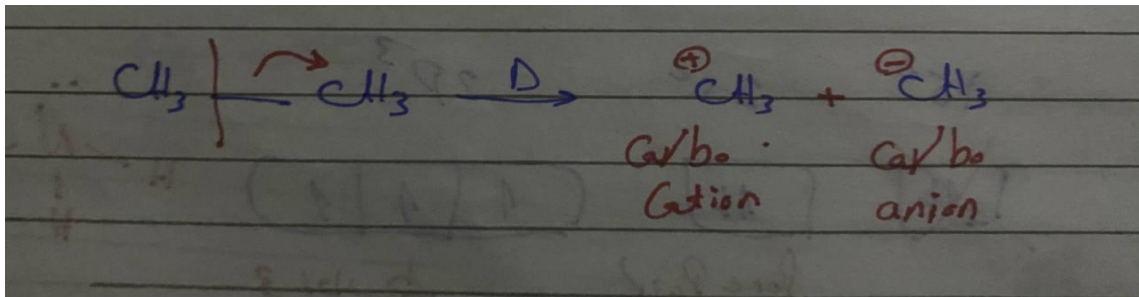 CH₃ | — CH₃ —D→ ⊕CH₃ + ⊖CH₃
Carbo Carbo
Cation anion